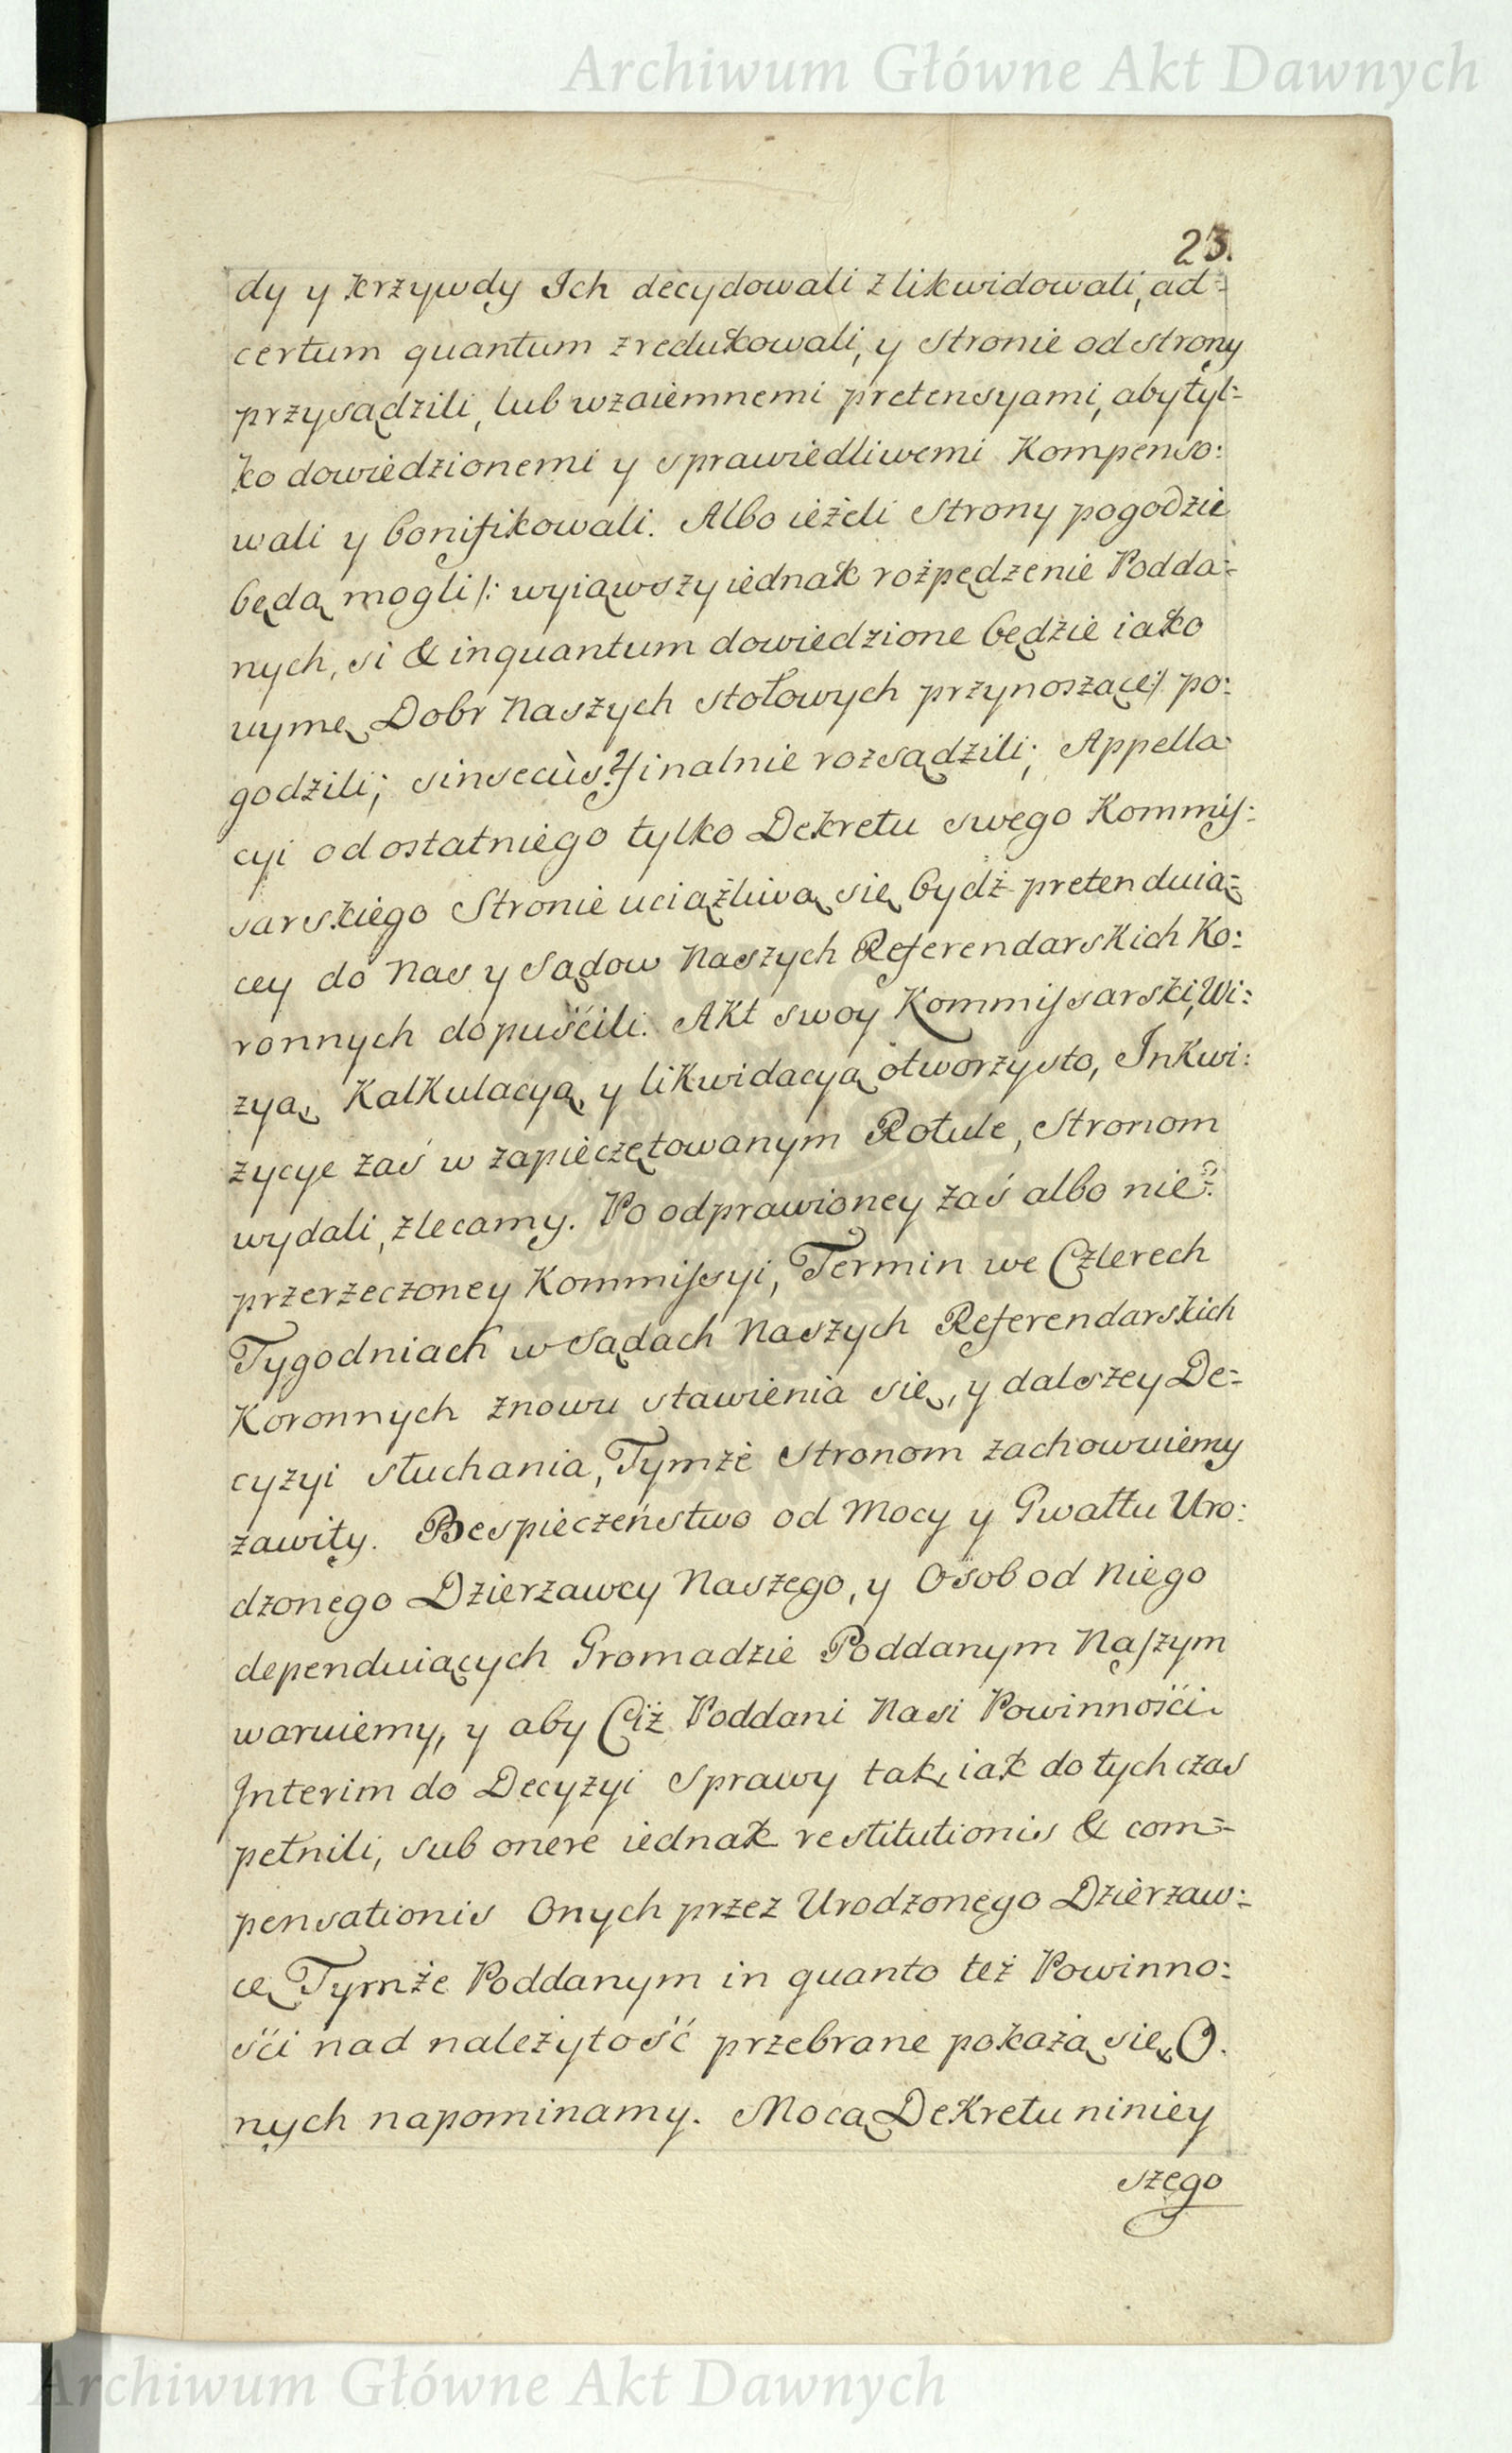 Archiwum Główne Akt Dawnych
23.
dy y krzywdy Ich decydowali zlikwidowali, ad=
certum quantum zredukowali, y Stronie od strony
przysądzili, lub wzaiemnemi pretensyami, aby tyl=
ko dowiedzionemi y sprawiedliwemi Kompenso:
wali y bonifikowali. Albo ieżeli Strony pogodzie
będą mogli /: wyiąwszy iednak rozpędzenie Podda=
nych, si & inquantum dowiedzione będzie iako
uymę Dobr Naszych stołowych przynoszące :/ po:
godzili; sinsecùs finalnie rozsądzili; Appella
cyi od ostatniego tylko Dekretu swego Kommis:
sarskiego Stronie uciążliwą się bydź pretenduią=
cey do Nas y Sądow Naszych Referendarskich Ko:
ronnych dopuścili. Akt swoy Kommissarski, Wi:
zyą, Kalkulacyą, y likwidacyą otworzysto, Inkwi:
zycye zaś w zapieczętowanym Rotule, Stronom
wydali, zlecamy. Po odprawioney zaś albo nie:
przerzeczoney Kommissyi, Termin we Czterech
Tygodniach w Sądach Naszych Referendarskich
Koronnych znowu stawienia się, y dalszey De=
cyzyi słuchania, Tymże Stronom zachowuiemy
zawity. Bespieczeństwo od Mocy y Gwałtu Uro:
dzonego Dzierzawcy Naszego, y Osob od Niego
dependuiących Gromadzie Poddanym Naszym
waruiemy, y aby Ciż Poddani Nasi Powinności
Interim do Decyzyi Sprawy tak, iak do tych czas
pełnili, sub onere iednak restitutionis & com=
pensationis Onych przez Urodzonego Dzierzaw:
cę Tymże Poddanym in quanto też Powinno:
ści nad należytość przebrane pokażą się, O.
nych napominamy. Mocą Dekretu niniey
szego
Archiwum Główne Akt Dawnych